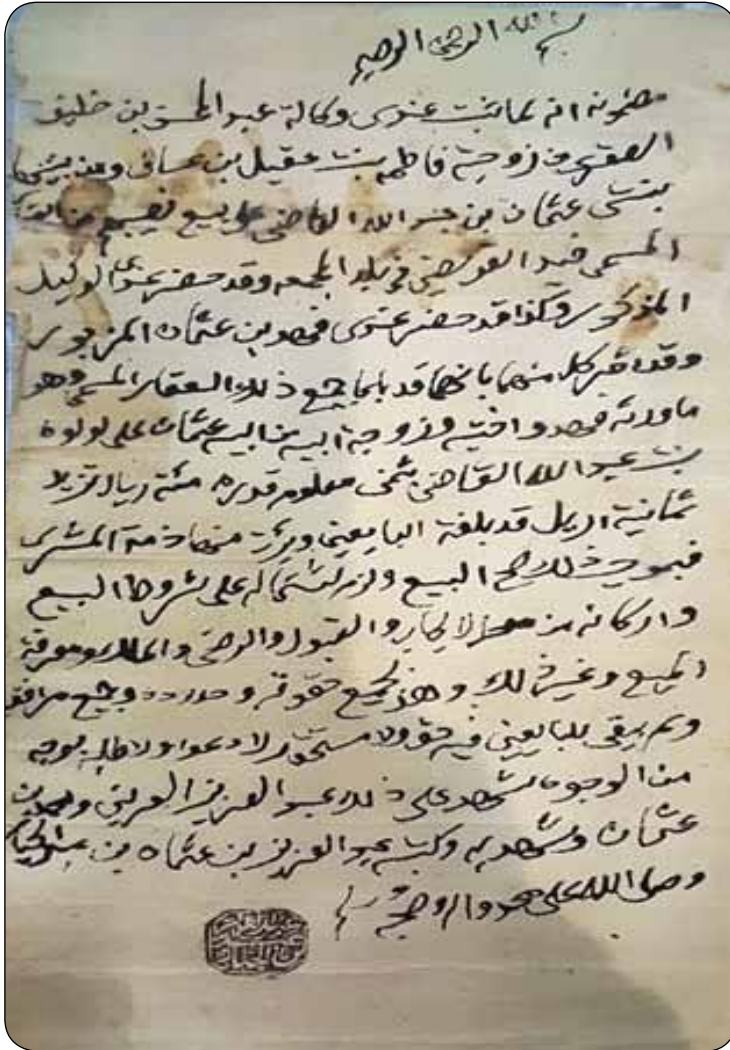 بسم الله الرحمن الرحيم
مضمونه انه لما ثبت عندي وكالة عبد المحسن بن خليف
الصقري من زوجته فاطمه بنت عقيل بن عساف ومن
بنتي عثمان بن عبد الله القاضي على بيع نصيبهم من العقار
المسمى فيد العريني في بلد المجمعه وقد حضر عندي الوكيل
المذكور وكذا قد حضر عندي محمد بن عثمان المزبور
وقد اقر كل منهما بانهما قد باعا جميع ذلك العقار المسمى وهو
ما ورثه محمد واخته وزوجة ابيه من ابيه عثمان على لولوه
بنت عبد الله القاضي بثمن معلوم قدره مئة ريال تزيد
ثمانية اريل قد بلغه البايعين وبرئت منها ذمة المشتري
فبموجب ذلك صح البيع ولزم لاشتماله على شروط البيع
واركانه من الايجاب والقبول والرضى والملك ومعرفة
المبيع وغير ذلك وهذا بجميع حقوقه وحدوده وجميع مرافقه
ولم يبقى للبايعين فيه حق ولا مستحق ولا دعوا ولا طلبه بوجه
من الوجوه شهد على ذلك عبد العزيز العريني ومحمد بن
عثمان وشهد به وكتبه عبد العزيز بن عثمان بن عبد الجبار
وصلى الله على محمد واله وصحبه وسلم